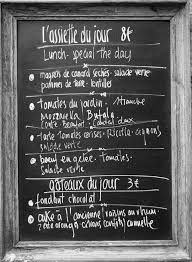 L'assiette du jour 8€
Lunch - special the day
• magrets de canard séchés - salade verte
pommes de terre - lentilles
• Tomates du jardin -
Mozzarella Bufala
• Tarte Tomates cerises - Ricotta - oignons
Salade verte
• boeuf en gelée - tomates -
Salade verte
gâteaux du jour 3€
• fondant chocolat
• cake à l'ancienne (raisins au rhum -
oranges (confits) cannelle